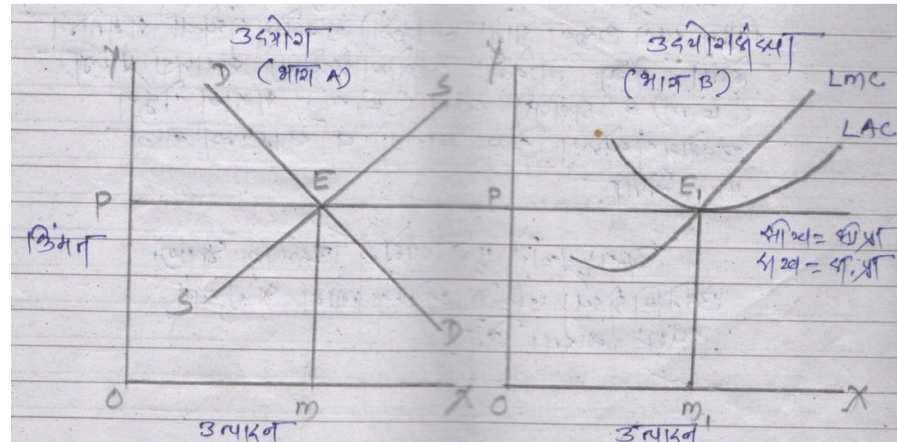 उद्योग
(भाग A)
Y
D
S
E
P
किंमत
S
D
O
M
X
उत्पादन
उद्योगसंस्था
(भाग B)
Y
LMC
LAC
P
E₁
O
M₁
X
उत्पादन